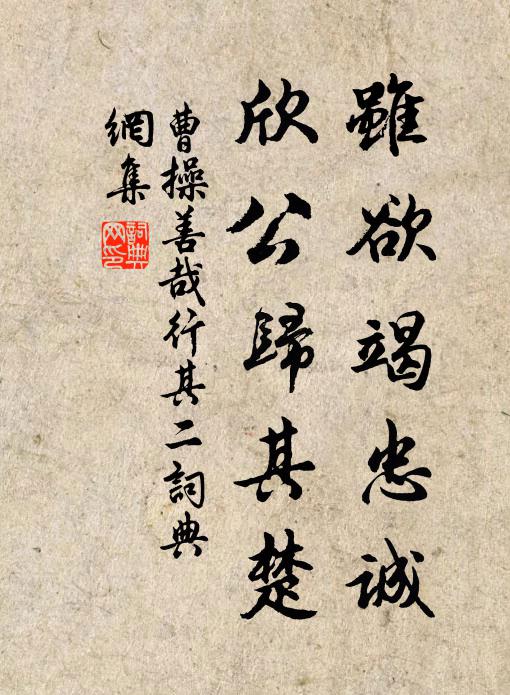 雖欲竭忠誠
欣公歸其楚
曹操善哉行其二詞典
網集
詞典
网印